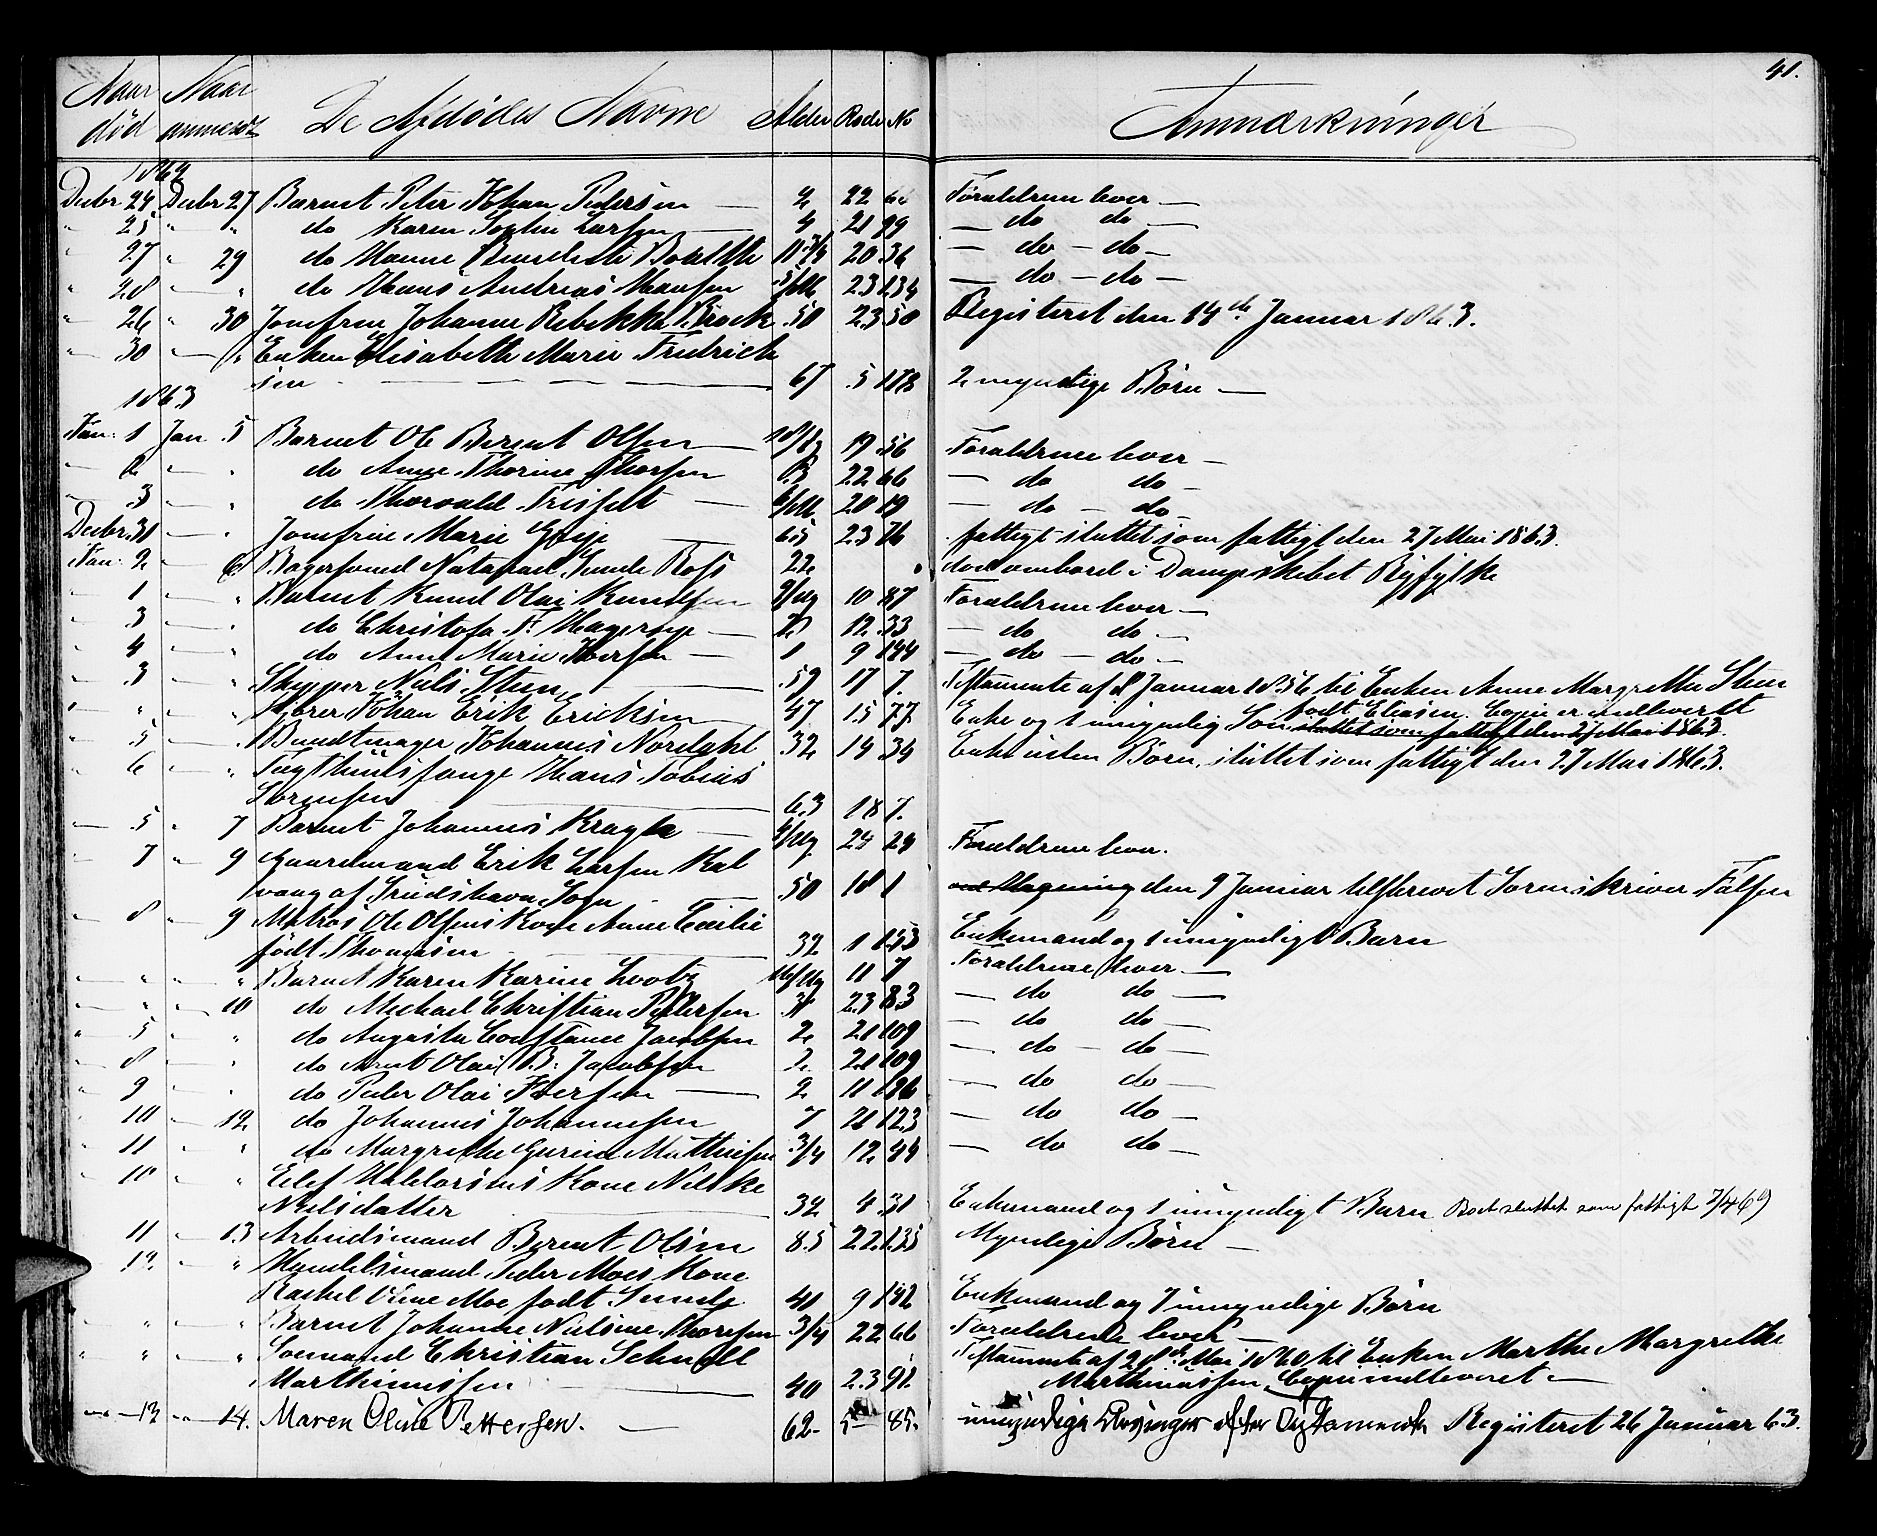 41.
Naar død Naar anmeldt De Afdødes Navne Alder Rode No Anmærkninger
1862
Decbr 24 Decbr 27 Barnet Peter Johan Pedersen — 2 22 66 Forældrene lever —
" 25 — " do Karen Sophie Larsen — 4 21 99 — do do —
" 27 " 29 do Hanne Bendicte 20 36 — do — do —
" 28 — " do Hans Andreas Hansen 23 134 — do — do —
" 26 " 30 Jomfrue Johanne Rebekka Brock 50 23 50 Registeret den 14de Januar 1863.
" 30 — " Enken Elisabeth Marie Fredrick
sen — 67 5 178 2 myndige Børn —
1863
Jan: 1 Jan 5 Barnet Ole Berent Olsen — 19 56 Forældrene lever —
" 2 — " do Anne Thorine Thorsen 22 66 — do do —
— 3 — " do Thorvald — 20 19 — do — do —
Decbr. 31 — " Jomfrue Marie 65 23 76 fattigt sluttet som fattigt den 27 Mai 1863.
Jan: 2 — 6 Bagersvend Natanael Sunde Ross 22 død ombord i Dampskibet Ryfylke
— 1 — " Barnet Knud Olai Knudsen 10 87 Forældrene lever —
— 3 — " do Christofa F. Hagerup — 12 33 — do do —
— 4 — " do Anne Marie Iversen — 1 9 144 — do — do —
— 3 — " Skipper Niels Steen — 59 17 7. Testamente af 8 Januar 1856 til Enken Anne Margrethe Steen
født Eliasen. Copie er indleveret
— " — " Johan Erik Ericksen — 47 15 77 Enke og 1 umyndig Søn sluttet som fattigt den 27 Mai 1863.
— 5 — " Bundtmager Johannes Nordahl 32 14 34 Enke uden Børn, sluttet som fattigt den 27 Mai 1863.
— 6 — " Tugthuusfange Hans Tobias
Sørensen — 63 18 7.
— 5 " 7 Barnet Johannes Kragh — 24 24 Forældrene lever.
— 7 " 9 Gaardmand Erik Larsen Kal
vaag af Sogn — 50 18 1 den 9 Januar tilskrevet Sorenskriver Falsen
— 8 " 9 Matros Ole Olsens Kone Anne Cecilie
født Thomsen — 32 1 153 Enkemand og 1 umyndigt Barn
" — " Barnet Karen Karine 11 7 Forældrene lever —
" — 10 do Michael Christian Pedersen 23 83 — do do —
" 5 — " do Augusta Constance Jacobsen 2 21 109 — do do —
" 8 — " do Arnt Olai B. Jacobsen 2 21 109 — do — do —
" 9 — " do Peder Olai Iversen — 2 11 186 — do do —
" 10 — 12 do Johannes Johannesen 7 21 123 — do do —
" 11 — " do Margrethe Gurine Mathisen 3/4 12 44 — do do —
" 10 — " Elef Haldorsens Kone Nilske
Nielsdatter — 32 4 31 Enkemand og 1 umyndigt Barn Boet sluttet som fattigt 7/4 69
" 11 — 13 Arbeidsmand Berent Olsen 85 22 135 Myndige Børn —
" 12 — " Handelsmand Peder Moes Kone
Rachel Oline Moe født Sunde 40 9 142 Enkemand og 7 umyndige Børn
" " — " Barnet Johanne Nielsine Thorsen 3/4 22 66 Forældrene lever —
" " — " Soemand Christian Schnell
Marthinussen — 40 23 91. Testamente af 28de Mai 1860 til Enken Marthe Margrethe
Marthinussen, Copie indleveret —
— 12 — 14. Maren Oline Pettersen. — 62 — 5 — 85. umyndige Arvinger efter Registeret 26 Januar 63.